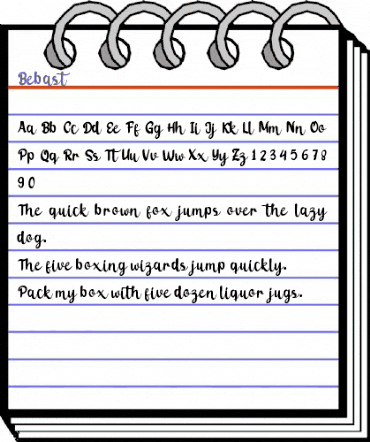 Bebast
Aa Bb Cc Dd Ee Ff Gg Hh Ii Jj Kk Ll Mm Nn Oo
Pp Qq Rr Ss Tt Uu Vv Ww Xx Yy Zz 1 2 3 4 5 6 7 8
9 0
The quick brown fox jumps over the lazy
dog.
The five boxing wizards jump quickly.
Pack my box with five dozen liquor jugs.